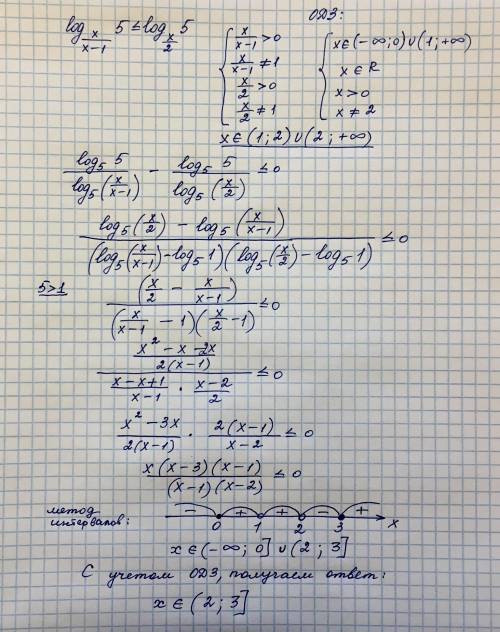 ОДЗ:
log_{x/(x-1)} 5 ≤ log_{x/2} 5
{ x/(x-1) > 0
x/(x-1) ≠ 1
x/2 > 0
x/2 ≠ 1
{ x∈(-∞;0)∪(1;+∞)
x∈R
x>0
x≠2
x∈(1;2)∪(2;+∞)
log₅5/log₅(x/(x-1)) - log₅5/log₅(x/2) ≤0
(log₅(x/2) - log₅(x/(x-1)))/((log₅(x/(x-1))-log₅1)(log₅(x/2)-log₅1)) ≤0
5>1
(x/2 - x/(x-1))/((x/(x-1) - 1)(x/2 - 1)) ≤0
((x²-x-2x)/(2(x-1)))/((x-x+1)/(x-1) · (x-2)/2) ≤0
(x²-3x)/(2(x-1)) · 2(x-1)/(x-2) ≤ 0
x(x-3)(x-1)/((x-1)(x-2)) ≤0
метод
интервалов:
- + + - +
0 1 2 3 x
x∈(-∞;0]∪(2;3]
С учетом ОДЗ, получаем ответ:
x∈(2;3]